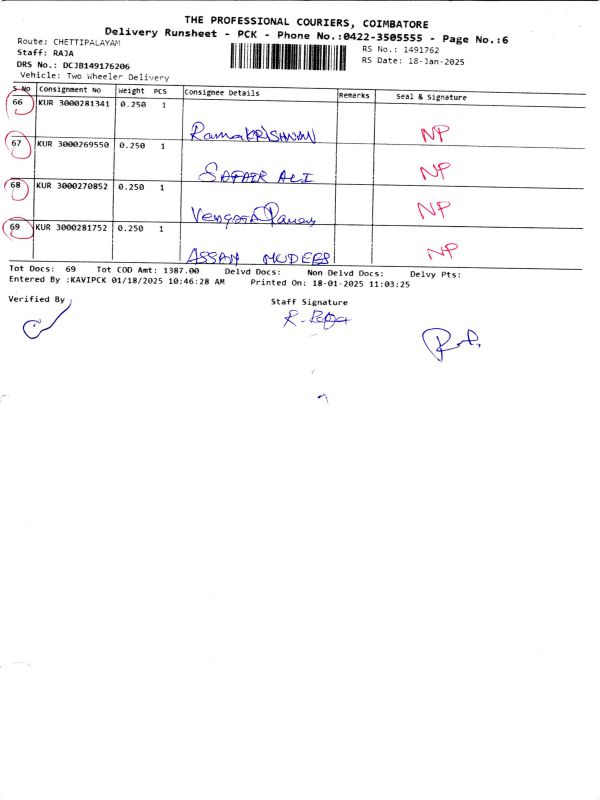 THE PROFESSIONAL COURIERS, COIMBATORE
Delivery Runsheet - PCK - Phone No.:0422-3505555 - Page No.:6
Route: CHETTIPALAYAM
RS No.: 1491762
Staff: RAJA
RS Date: 18-Jan-2025
DRS No.: DCJB149176206
Vehicle: Two Wheeler Delivery
S No Consignment No Weight PCS Consignee Details Remarks Seal & Signature
66 KUR 3000281341 0.250 1
RamaKRISHNAN NP
67 KUR 3000269550 0.250 1
SAFAIR ALI NP
68 KUR 3000270852 0.250 1
NP
69 KUR 3000281752 0.250 1
ASSAN NP
Tot Docs: 69 Tot COD Amt: 1387.00 Delvd Docs: Non Delvd Docs: Delvy Pts:
Entered By :KAVIPCK 01/18/2025 10:46:28 AM Printed On: 18-01-2025 11:03:25
Verified By
Staff Signature
R. Raja